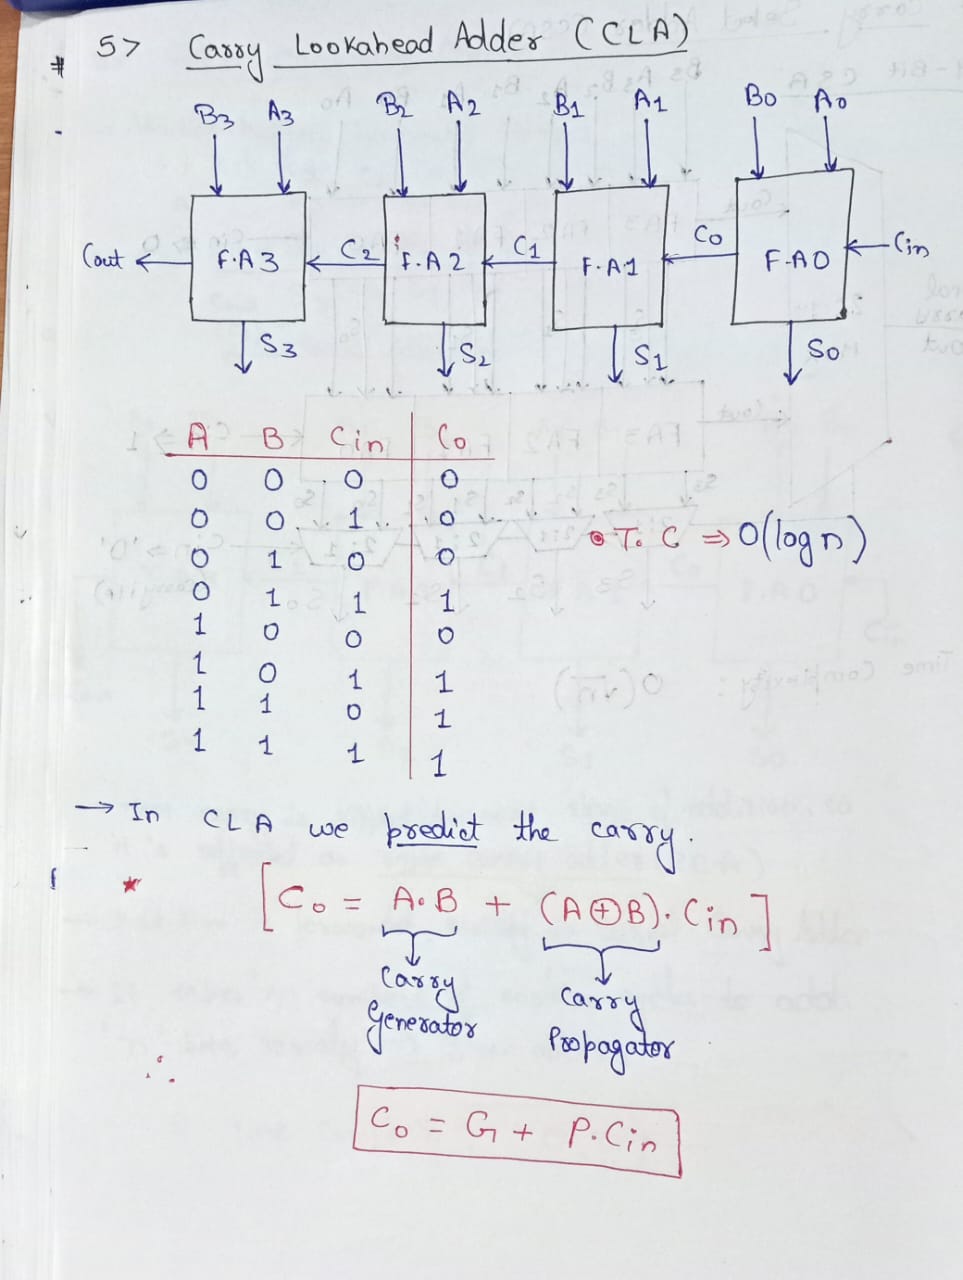 # 5> Carry Lookahead Adder (CLA)
B3 A3 B2 A2 B1 A1 B0 A0
Cout F.A3 C2 F.A2 C1 F.A1 C0 F.A0 Cin
S3 S2 S1 S0
A B Cin Co
0 0 0 0
0 0 1 0
0 1 0 0
0 1 1 1
1 0 0 0
1 0 1 1
1 1 0 1
1 1 1 1
• T.C ⇒ O(log n)
→ In CLA we predict the carry.
★ [Co = A·B + (A⊕B)·Cin]
Carry Generator
Carry Propagator
∴
Co = G + P.Cin